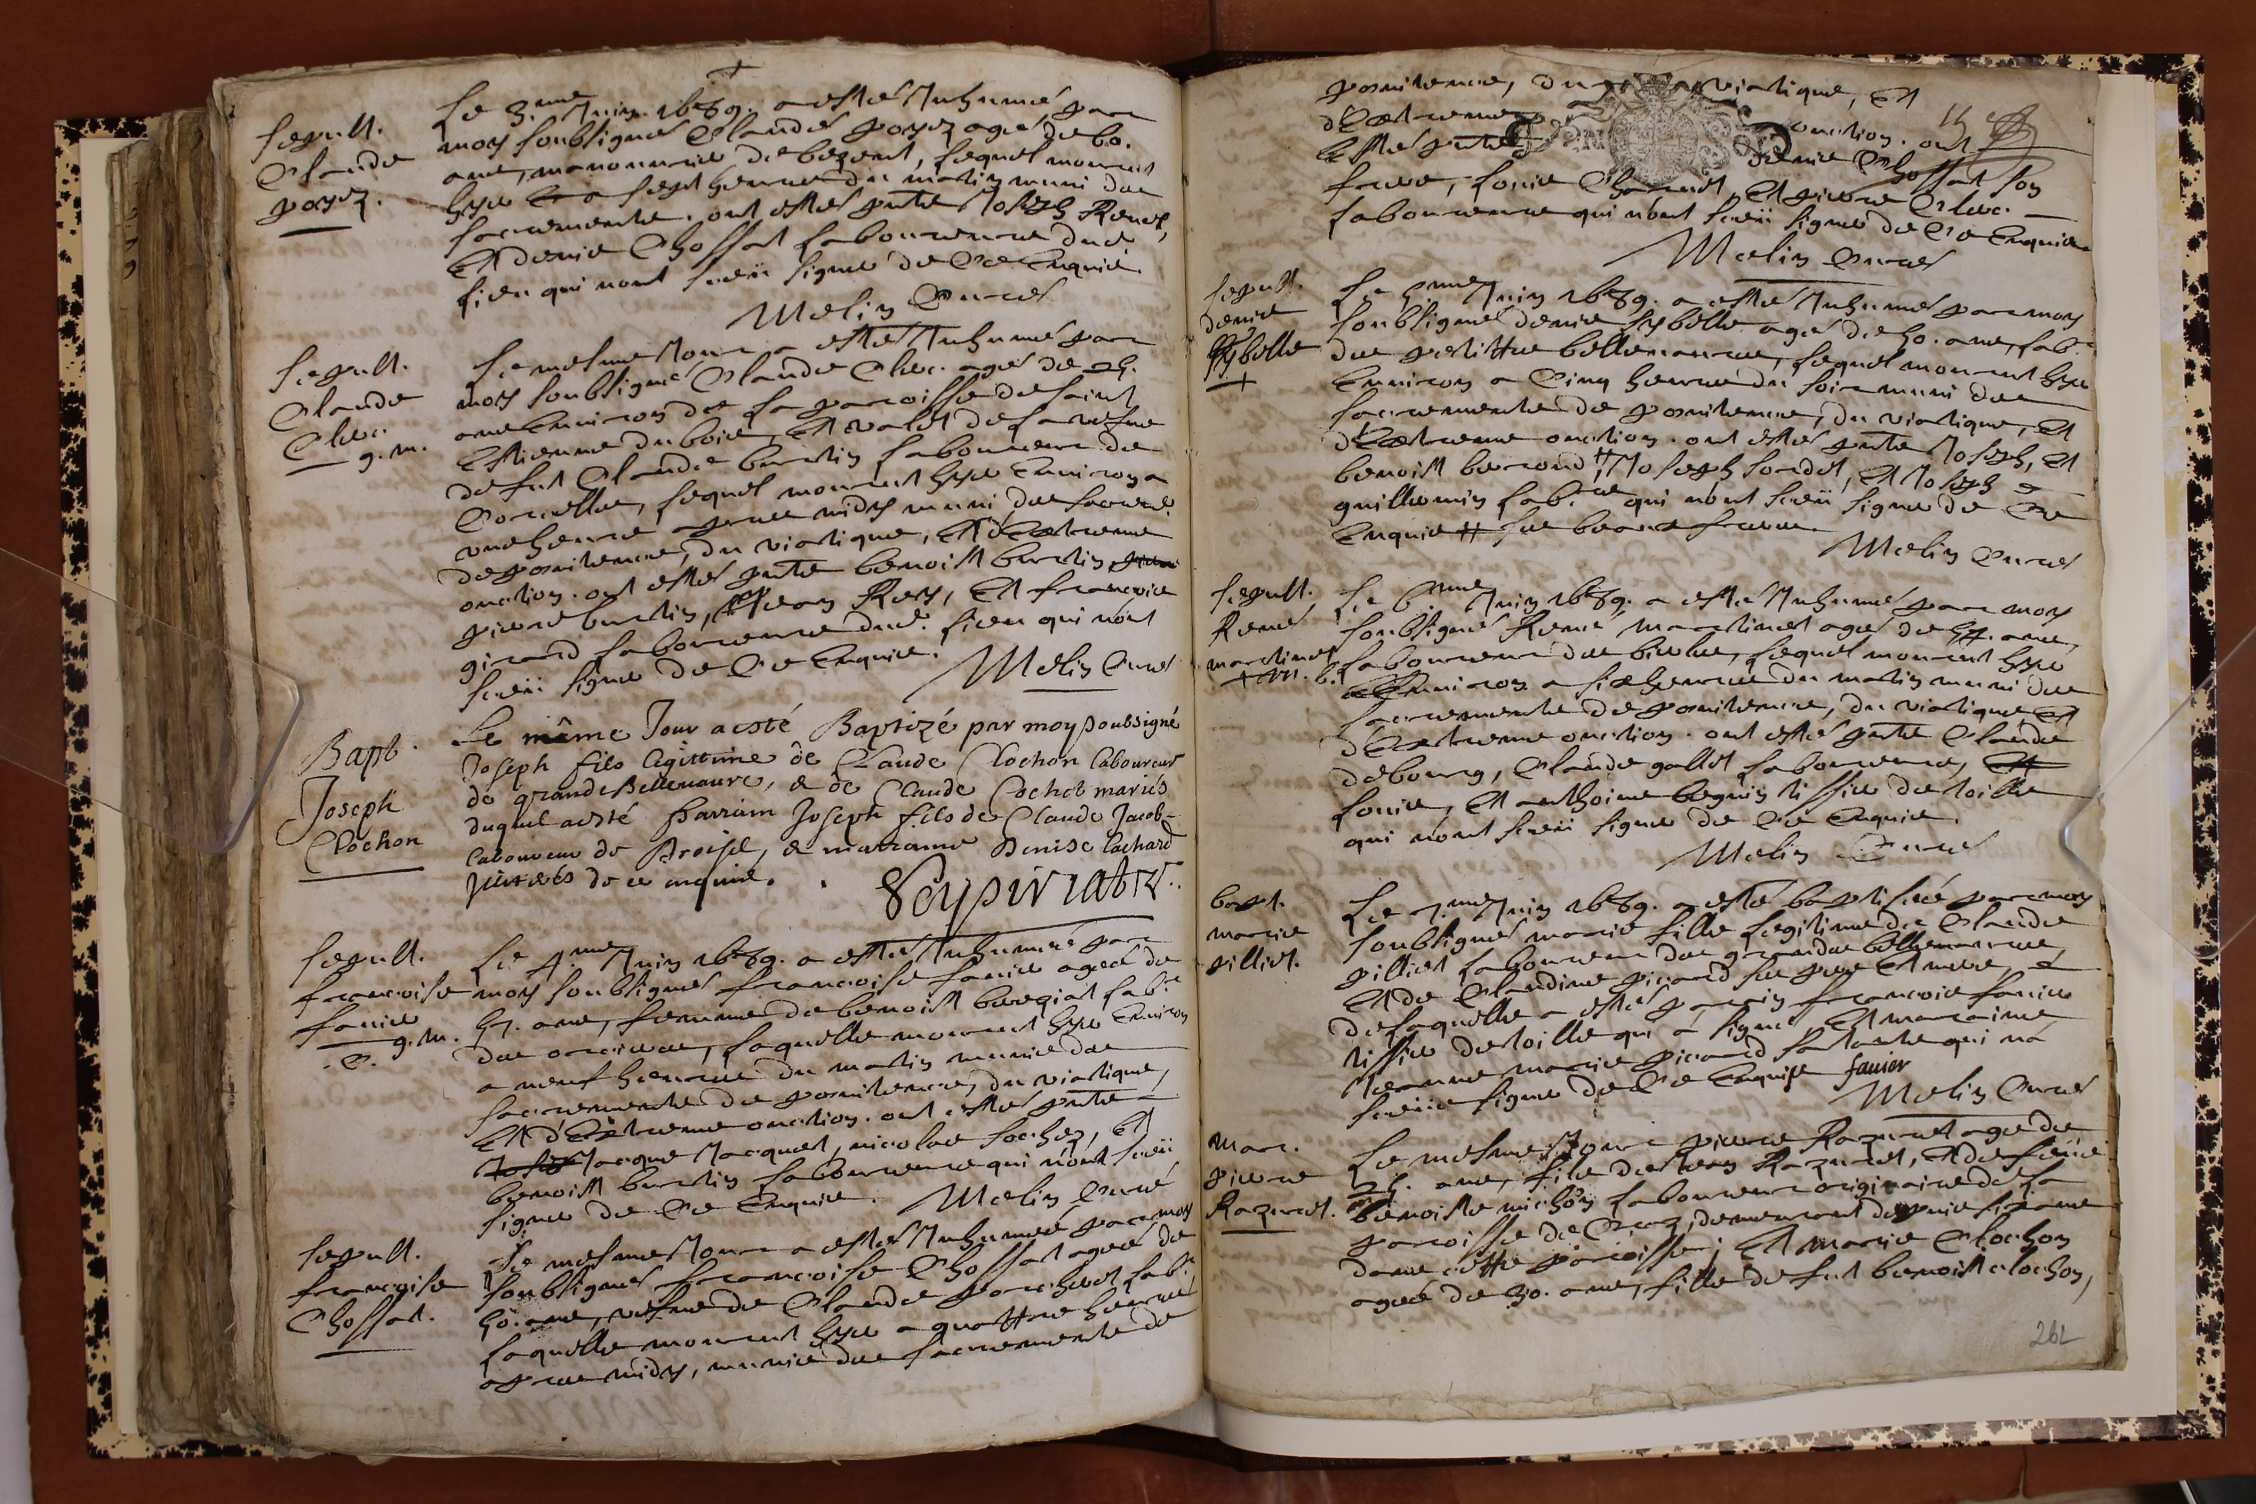 Sepult.
Claude
poyez.
Le 3.me Juin 1689. a esté Inhumé par
moy soubsigné Claude poyez agé de 60.
ans, manouvrier de bezent, lequel mourut
hyer a sept heures du matin muni des
sacrements. ont estés pnts Joseph Renoy,
Et denis Chossat laboureurs dud.
lieu qui n'ont sceü signé de Ce Enquis.
Melin Curé
Sepult.
Claude
Clerc.
g. m.
Le mesme Jour a esté Inhumé par
moy soubsigné Claude Clerc. agé de 25.
ans Environ de la paroisse de saint
Estienne du bois, Et valet de la vefve
de fut Claude burtin laboureur de
Corcelles, lequel mourut hyer Environ a
une heure apres midy muni des sacrem.
de poenitence, du viatique, Et d'Extreme
onction. ont estés pnts benoist burtin,
pierre burtin, Jean Rey, Et francois
girard laboureurs dud. lieu qui n'ont
sceü signé de Ce Enquis.
Melin Curé
Bapt.
Joseph
Clochon
Le même Jour a esté Baptizé par moy soubsigné
Joseph fils légittime de Claude Clochon laboureur
de grands Bellenaure, & de Claude Cochet mariés
duquel a esté parrain Joseph fils de Claude Jacob
laboureur de Broise, & marraine Denise Lachard
de ce enquis.
Sepult.
francoise
favier
g. m.
Le 4.me Juin 1689. a esté Inhumée par
moy soubsigné francoise favier agée de
57. ans, femme de benoist bereziat lab.r
des orcieres, laquelle mourut hyer Environ
a neuf heures du matin munie des
sacrements de poenitence, du viatique,
Et d'Extreme onction. ont estés pnts
Jacque Jacquet, nicolas sochez, Et
benoist burtin laboureurs qui n'ont sceü
signé de Ce Enquis. Melin Curé
Sepult.
francoise
Chossat.
Le mesme Jour a esté Inhumée par moy
soubsigné francoise Chossat agée de
50. ans, vefve de Claude porchet lab.r
laquelle mourut hyer a quattre heures
apres midy, munie des sacrements de
poenitence, du viatique, Et
d'Extreme onction. ont
Estés pnts denis Chossat son
frere, louis Charnet, Et pierre Clerc.
laboureurs qui n'ont sceü signé de Ce Enquis
Melin Curé
Sepult.
denis
sybelle
Le 5.me Juin 1689. a esté Inhumé par moy
soubsigné denis sybelle agé de 50. ans, lab.r
des petittes bellenaures, lequel mourut hyer
Environ a Cinq heures du soir muni des
sacrements de poenitence, du viatique, Et
d'Extreme onction. ont estés pnts Joseph, Et
benoist beroud # Joseph sordet, Et Joseph
guillemin lab.rs qui n'ont sceü signé de Ce
Enquis # ses beaux freres.
Melin Curé
Sepult.
René
martinet
Le 6.me Juin 1689. a esté Inhumé par moy
soubsigné René martinet agé de 54. ans,
laboureur des bioles, lequel mourut hyer
Environ a six heures du matin muni des
sacrements de poenitence, du viatique Et
d'Extreme onction. ont estés pnts Claude
debourg, Claude gallet laboureurs,
louis, Et anthoine beguin tissier de toille
qui n'ont sceü signé de Ce Enquis.
Melin Curé
bapt.
marie
pilliet.
Le 7.me Juin 1689. a esté baptisée par moy
soubsigné marie fille legitime de Claude
pilliet laboureur des grandes bellenaures,
Et de Claudine picard ses pere Et mere,
de laquelle a esté parrin francois favier
tissier de toille qui a signé, Et marraine
Jeanne marie picard sa tante qui n'a
sceüe signé de Ce Enquise favier
Melin Curé
Mar.
pierre
Razuret.
Le mesme Jour pierre Razuret agé de
26. ans, fils de Jean Razuret, Et de feüe
benoiste michon laboureur originaire de la
paroisse de Cras, demeurant depuis sixans
dans cette paroisse; Et Marie Clochon
agée de 30. ans, fille de fut benoist clochon,
262